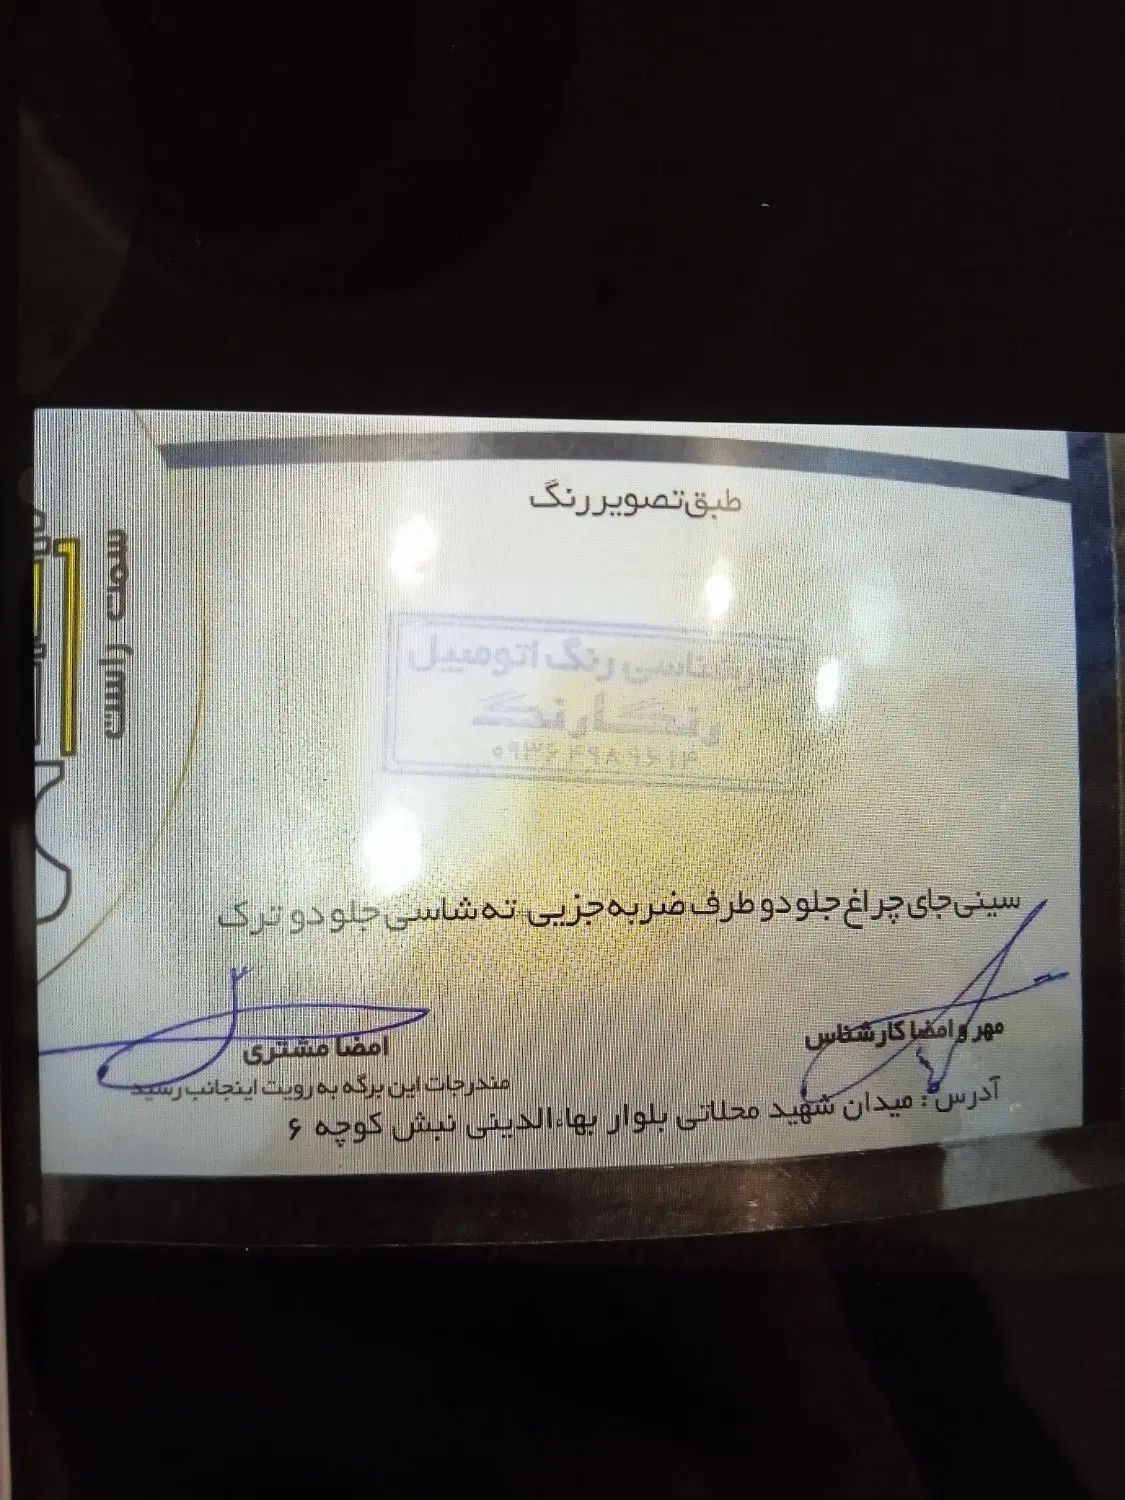 طبق تصویر رنگ
سمت راست
کارشناسی رنگ اتومبیل
رنگارنگ
۰۹۳۶ ۴۹۸ ۹۶ ۱۴
سینی جای چراغ جلو دو طرف ضربه جزیی ته شاسی جلو دو ترک
مهر و امضا کارشناس
امضا مشتری
مندرجات این برگه به رویت اینجانب رسید
آدرس: میدان شهید محلاتی بلوار بهاءالدینی نبش کوچه ۶